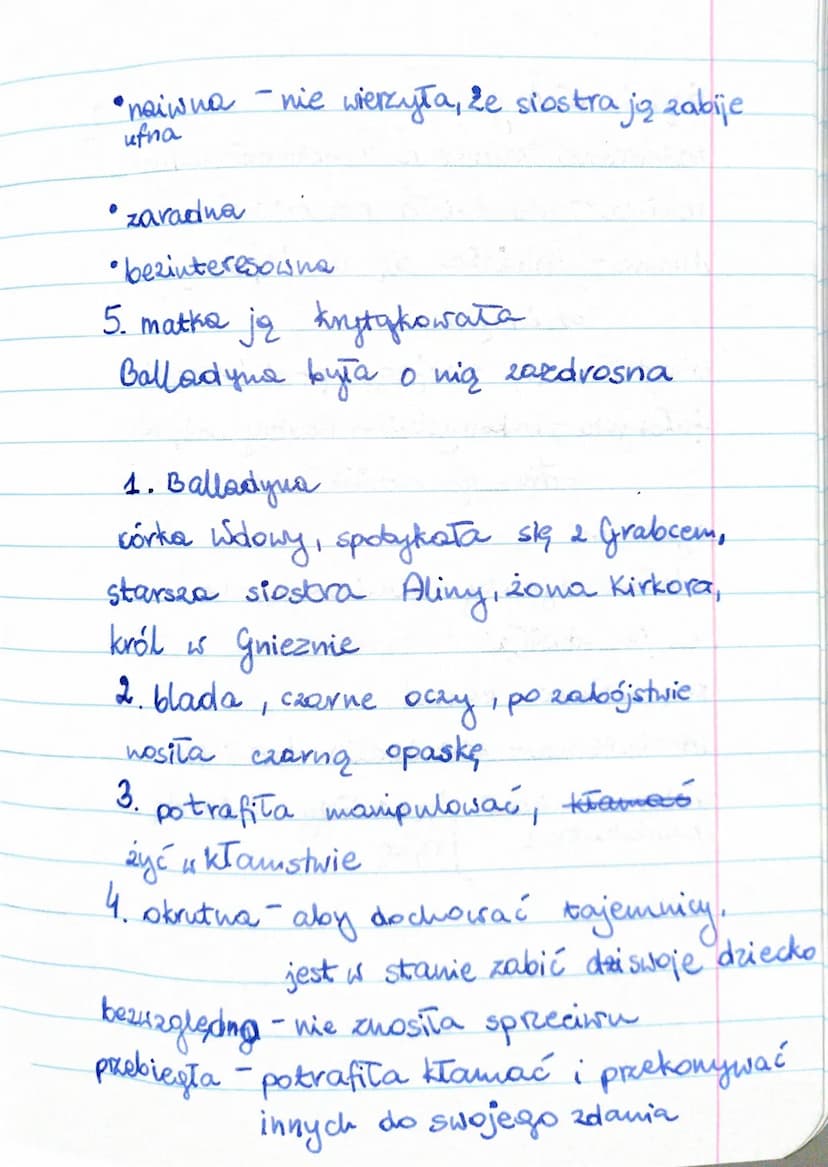 •naiwna - nie wierzyła, że siostra ją zabije
ufna
•zaradna
•bezinteresowna
5. matka ją krytykowała
Balladyna była o nią zazdrosna
1. Balladyna
córka Wdowy, spotykała się z Grabcem,
starsza siostra Aliny, żona Kirkora,
król w Gnieznie
2. blada, czarne oczy, po zabójstwie
nosiła czarną opaskę
3. potrafiła manipulować, kłamać
żyć w kłamstwie
4. okrutna - aby dochować tajemnicy.
jest w stanie zabić dzi swoje dziecko
bezwzględna - nie znosiła sprzeciwu
przebiegła - potrafiła kłamać i przekonywać
innych do swojego zdania